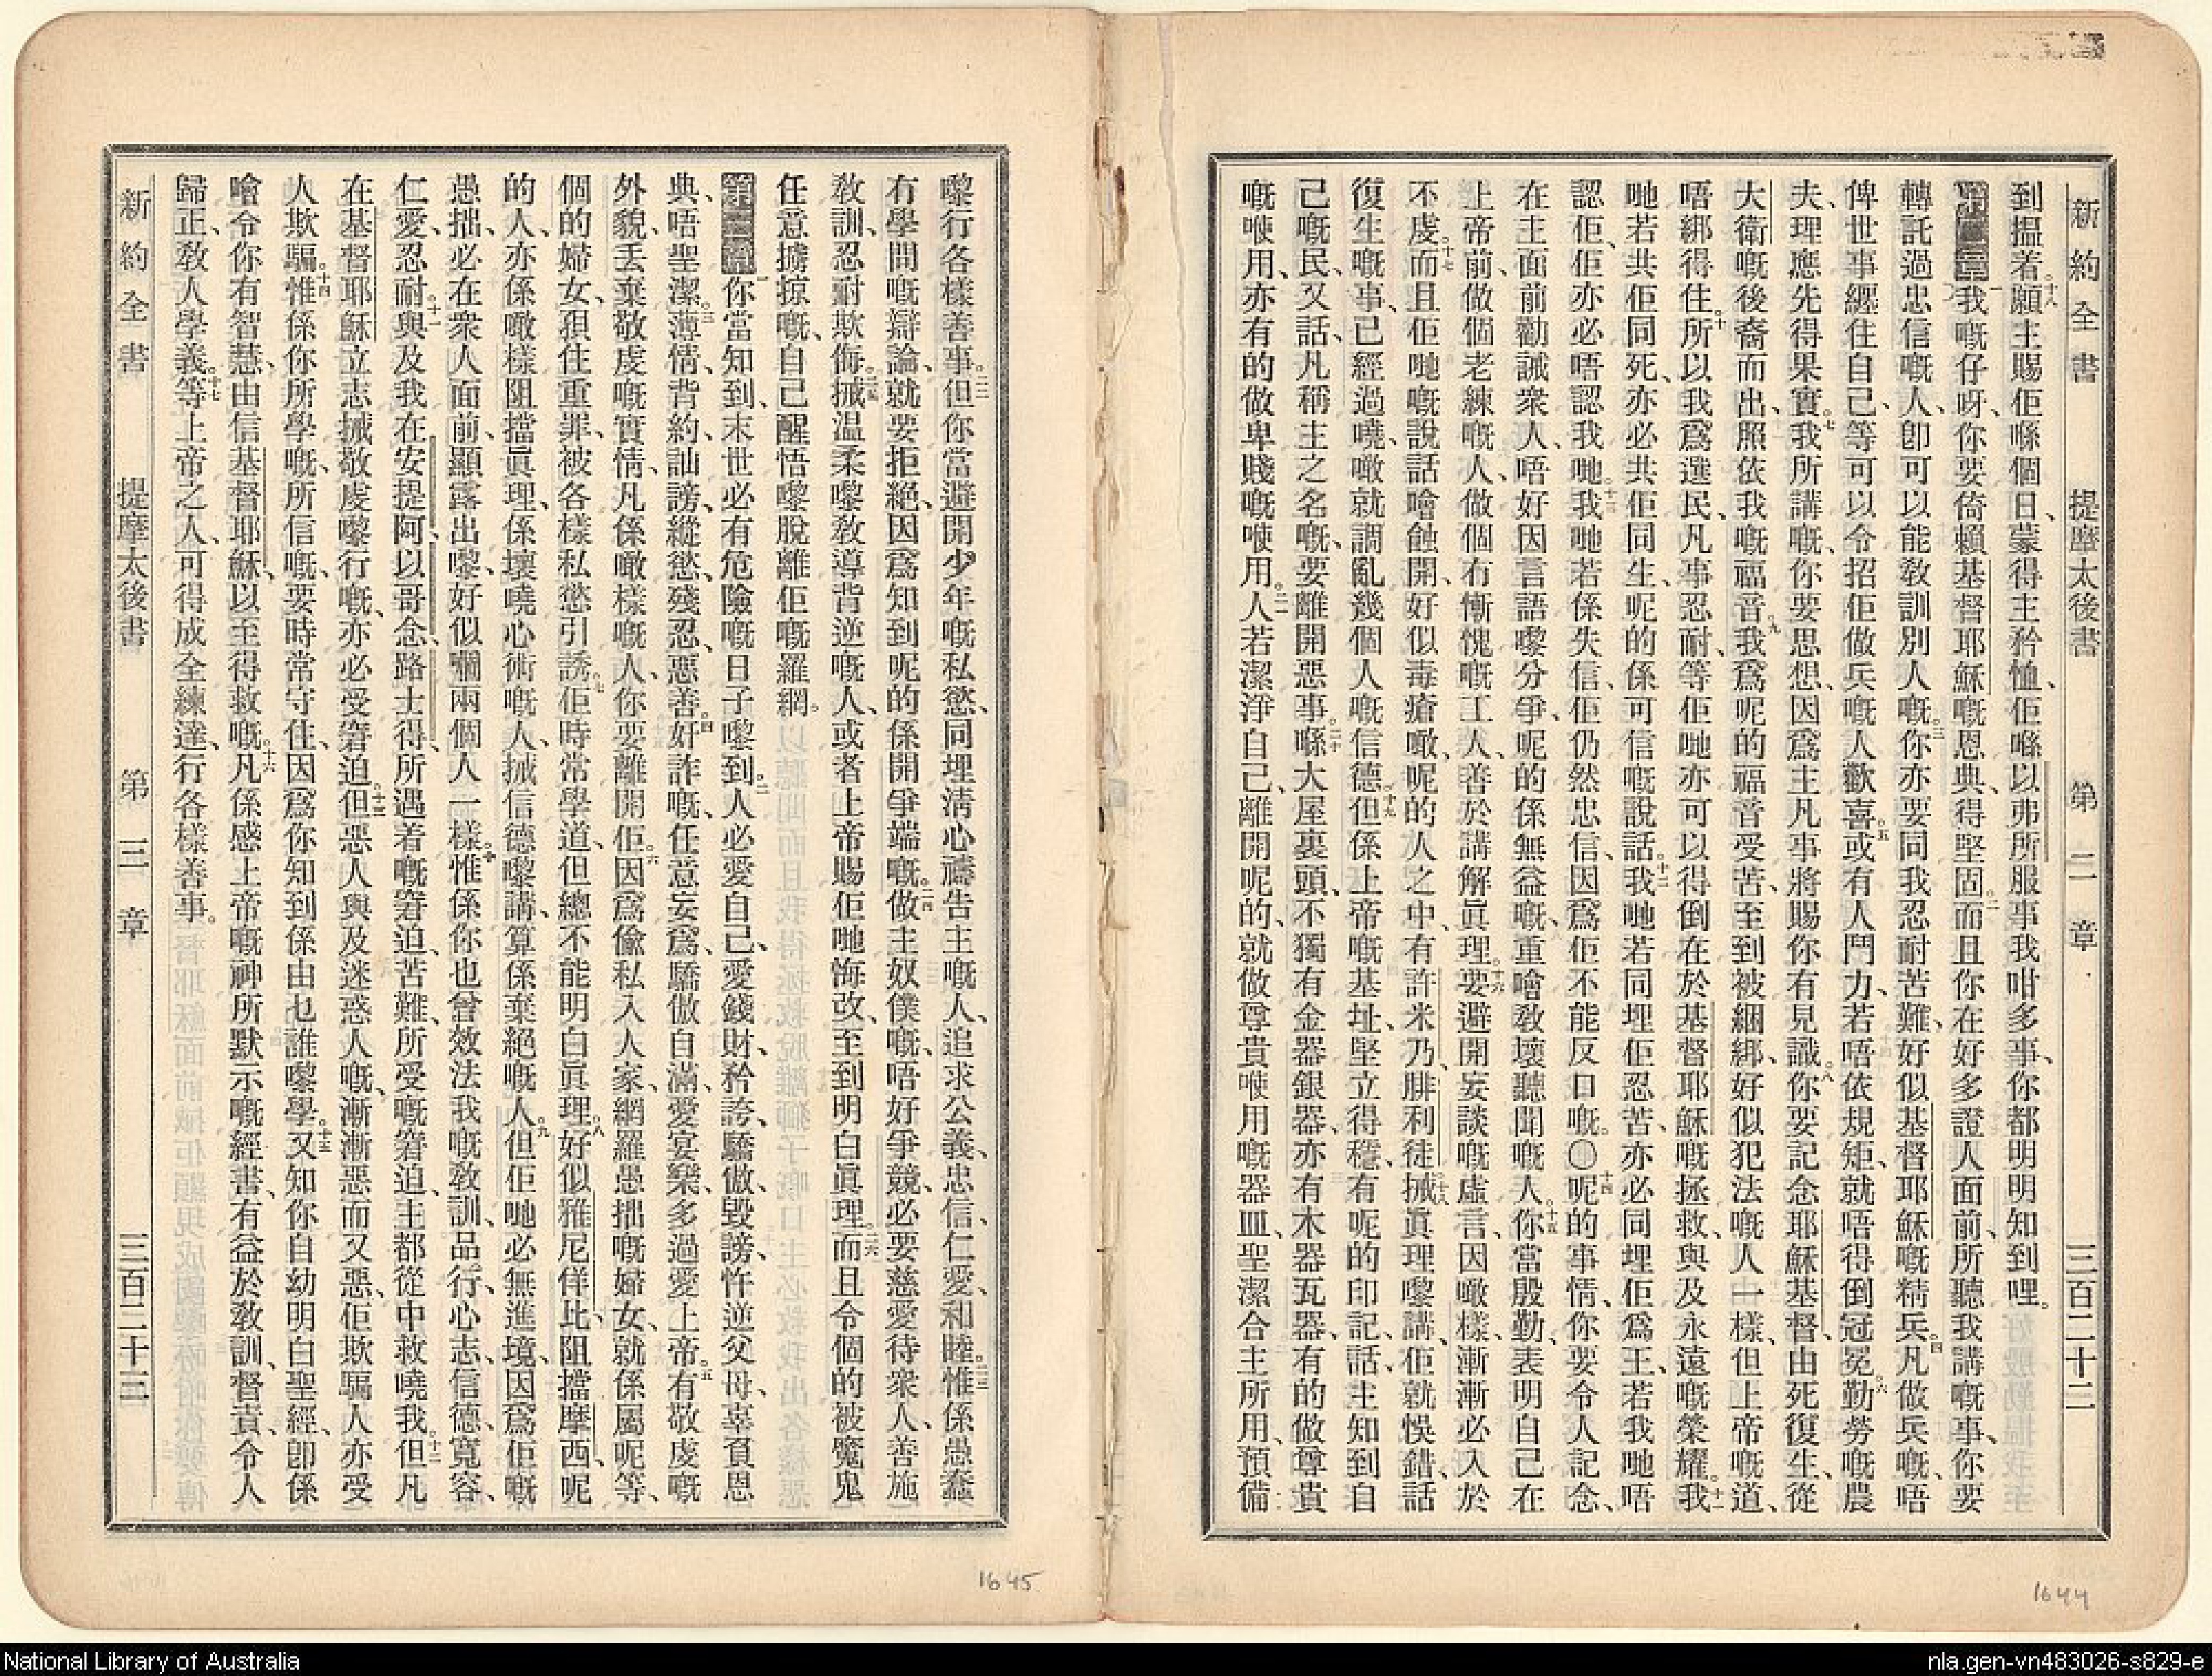 新約全書 提摩太後書 第二章 三百二十二
到搵着。十八願主賜佢喺個日、蒙得主矜恤、佢喺以弗所服事我咁多事、你都明明知到哩。
第二章一我嘅仔呀、你要倚賴基督耶穌嘅恩典、得堅固。二而且你在好多證人面前、所聽我講嘅事、你要
轉託過忠信嘅人、卽可以能敎訓別人嘅。三你亦要同我忍耐苦難、好似基督耶穌嘅精兵。四凡做兵嘅、唔
俾世事纏住自己、等可以令招佢做兵嘅人歡喜。五或有人鬥力、若唔依規矩、就唔得倒冠冕。六勤勞嘅農
夫、理應先得果實。七我所講嘅、你要思想、因爲主凡事將賜你有見識。八你要記念耶穌基督、由死復生、從
大衛嘅後裔而出、照依我嘅福音。九我爲呢的福音受苦、至到被綑綁、好似犯法嘅人一樣、但上帝嘅道、
唔綁得住。十所以我爲選民、凡事忍耐、等佢哋亦可以得倒在於基督耶穌嘅拯救、與及永遠嘅榮耀。十一我
哋若共佢同死、亦必共佢同生、呢的係可信嘅說話。十二我哋若同埋佢忍苦、亦必同埋佢爲王、若我哋唔
認佢、佢亦必唔認我哋。十三我哋若係失信、佢仍然忠信、因爲佢不能反口嘅。〇十四呢的事情、你要令人記念、
在主面前勸誡衆人、唔好因言語嚟分爭、呢的係無益嘅、重噲敎壞聽聞嘅人。十五你當殷勤、表明自己在
上帝前、做個老練嘅人、做個冇慚愧嘅工人、善於講解眞理。十六要避開妄談嘅虛言、因噉樣、漸漸必入於
不虔。十七而且佢哋嘅說話噲蝕開、好似毒瘡噉、呢的人之中、有許米乃、腓利徒、十八搣眞理嚟講、佢就悞錯、話
復生嘅事、已經過曉、噉就調亂幾個人嘅信德。十九但係上帝嘅基址、堅立得穩、有呢的印記、話、主知到自
己嘅民、又話、凡稱主之名嘅、要離開惡事。二十喺大屋裏頭、不獨有金器銀器、亦有木器瓦器、有的做尊貴
嘅㗎用、亦有的做卑賤嘅㗎用。二一人若潔淨自己、離開呢的、就做尊貴㗎用嘅器皿、聖潔合主所用、預備
1644
嚟行各樣善事。二二但你當避開少年嘅私慾、同埋淸心禱告主嘅人、追求公義、忠信、仁愛、和睦。二三惟係愚蠢
冇學問嘅辯論、就要拒絕、因爲知到呢的係開爭端嘅。二四做主奴僕嘅、唔好爭競、必要慈愛待衆人、善施
敎訓、忍耐欺侮。二五搣温柔嚟敎導背逆嘅人、或者上帝賜佢哋悔改、至到明白眞理。二六而且令個的被魔鬼
任意擄掠嘅、自己醒悟嚟脫離佢嘅羅網。
第三章一你當知到、末世必有危險嘅日子嚟到。二人必愛自己、愛錢財、矜誇、驕傲、毀謗、忤逆父母、辜負恩
典、唔聖潔。三薄情、背約、訕謗、縱慾、殘忍、惡善。四奸詐嘅、任意妄爲、驕傲自滿、愛宴樂、多過愛上帝。五有敬虔嘅
外貌、丟棄敬虔嘅實情、凡係噉樣嘅人、你要離開佢。六因爲偸私入人家、網羅愚拙嘅婦女、就係屬呢等、
個的婦女、孭住重罪、被各樣私慾引誘。七佢時常學道、但總不能明白眞理。八好似雅尼佯比、阻擋摩西、呢
的人、亦係噉樣阻擋眞理、係壞曉心術嘅人、搣信德嚟講、算係棄絕嘅人。九但佢哋必無進境、因爲佢嘅
愚拙、必在衆人面前、顯露出嚟、好似嗰兩個人一樣。十惟係你也曾效法我嘅敎訓、品行、心志、信德、寬容、
仁愛、忍耐。十一與及我在安提阿、以哥念、路士得、所遇着嘅窘迫、苦難、所受嘅窘迫、主都從中救曉我。十二但凡
在基督耶穌立志搣敬虔嚟行嘅、亦必受窘迫。十三但惡人與及迷惑人嘅、漸漸惡而又惡、佢欺騙人、亦受
人欺騙。十四惟係你所學嘅、所信嘅、要時常守住、因爲你知到係由乜誰嚟學。十五又知你自幼明白聖經、卽係
噲令你有智慧、由信基督耶穌、以至得救嘅。十六凡係感上帝嘅神所默示嘅經書、有益於敎訓、督責、令人
歸正、敎人學義。十七等上帝之人、可得成全練達、行各樣善事。
新約全書 提摩太後書 第三章 三百二十三
1645
National Library of Australia
nla.gen-vn483026-s829-e